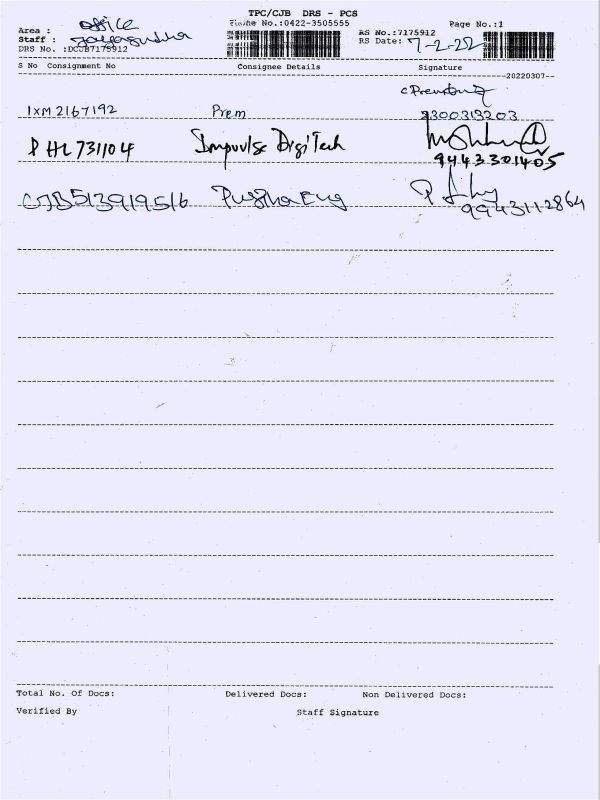 TPC/CJB DRS - PCS
Area : Office Phone No.:0422-3505555 Page No.:1
Staff : RS No.:7175912
DRS No. :DCCB7175912 RS Date: 7-2-22
S No Consignment No Consignee Details Signature
20220307
IXM2167192 Prem 9300313203
PHL731104 Impuvlse DigiTech
9443301405
CJB513919516 Pugha Eng
9943112864
Total No. Of Docs: Delivered Docs: Non Delivered Docs:
Verified By Staff Signature